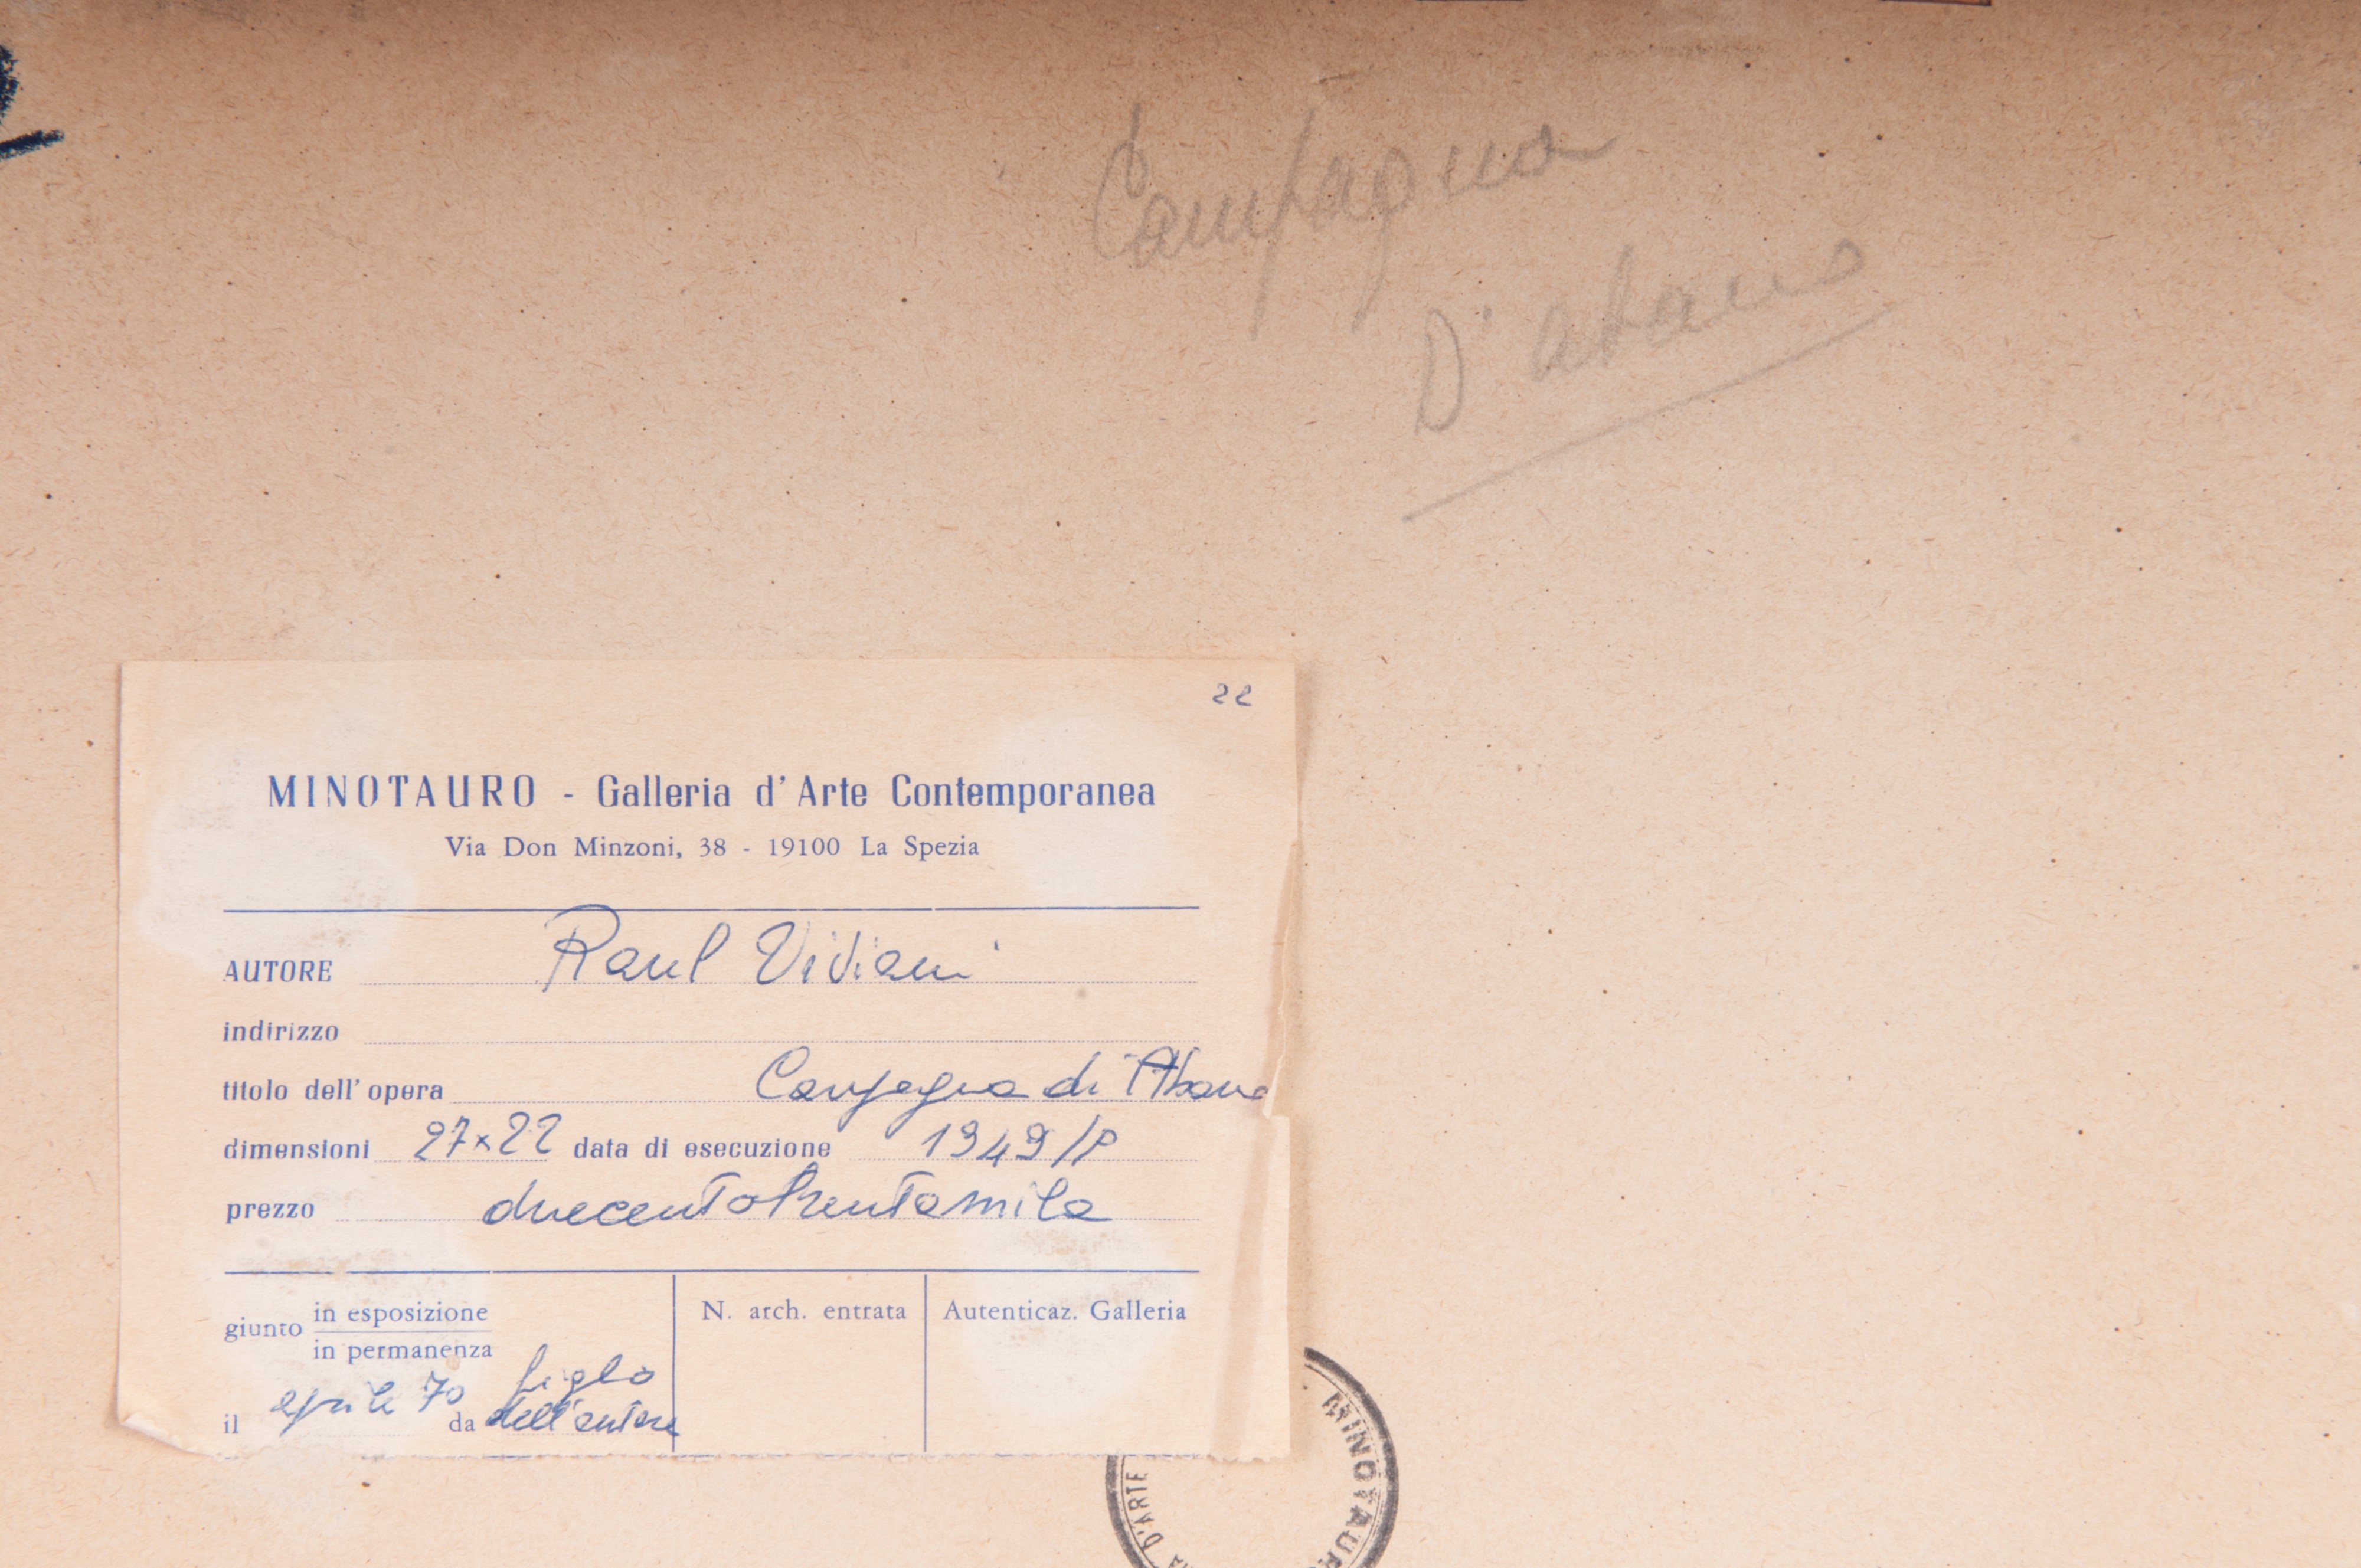 Campagna
D'abano
22
MINOTAURO - Galleria d'Arte Contemporanea
Via Don Minzoni, 38 - 19100 La Spezia
AUTORE Raul Viviani
indirizzo
titolo dell'opera Campagna di Abano
dimensioni 27x22 data di esecuzione 1949/P
prezzo duecentotrentamila
giunto in esposizione
in permanenza
N. arch. entrata
Autenticaz. Galleria
il aprile 70 da figlio
dell'autore
D'ARTE
MINOTAUR